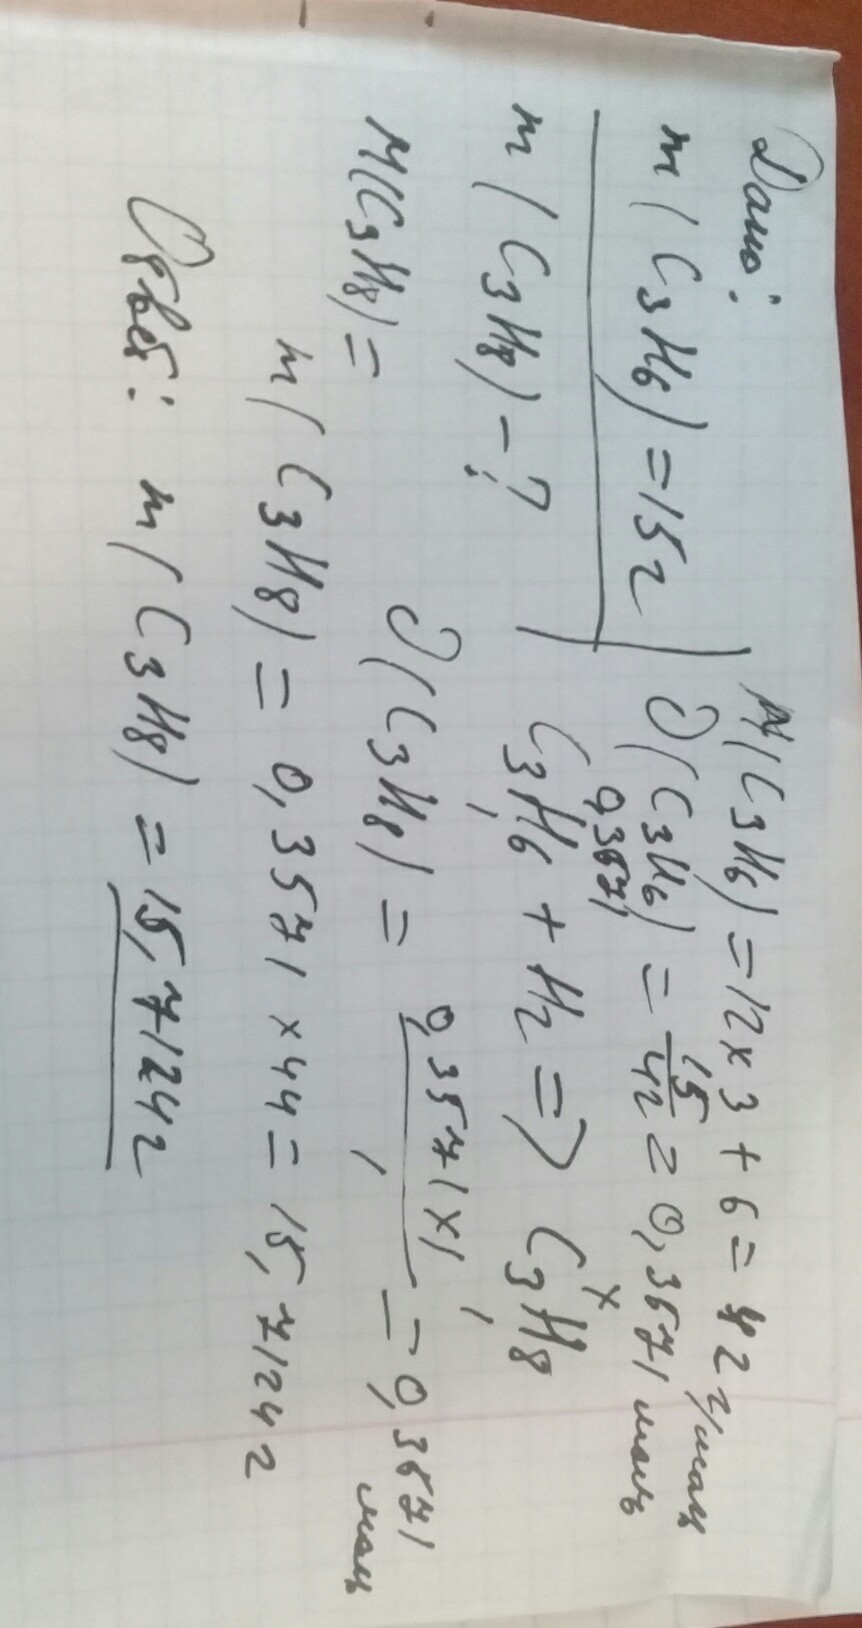 Дано:
m(C3H6)=15г
m(C3H8)-?
M(C3H8)=
M(C3H6)=12×3+6=42 г/моль
ט(C3H6)=15/42=0,3571 моль
0,3571 x
C3H6+H2=>C3H8
1 1
ט(C3H8)=0,3571×1/1=0,3571 моль
m(C3H8)=0,3571×44=15,7124г
Ответ: m(C3H8)=15,7124г